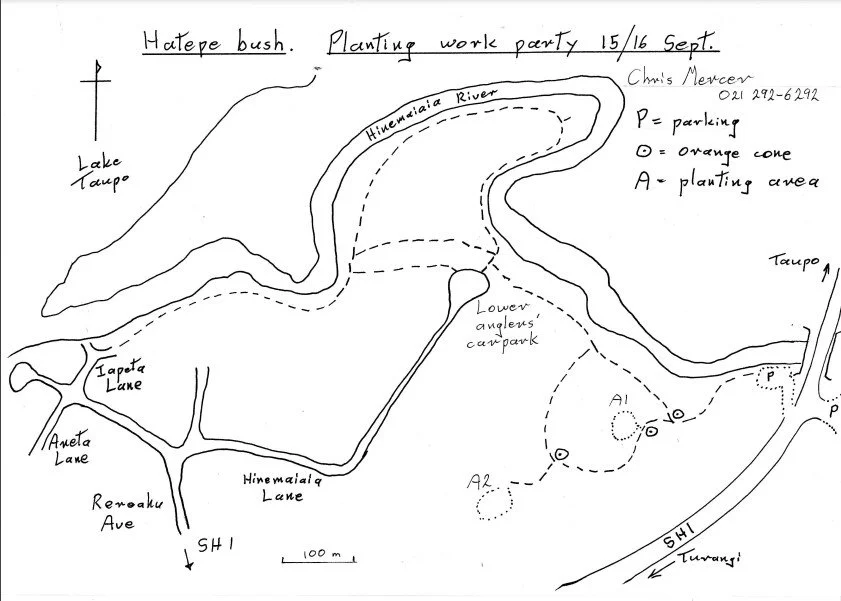 Hatepe bush. Planting work party 15/16 Sept.
Chris Mercer
021 292-6292
P = parking
⊙ = orange cone
A - planting area
Lake
Taupo
Hinemaiaia River
Taupo
Lower
anglers'
carpark
Iapeta
Lane
P
P
A1
Aneta
Lane
Hinemaiaia
Lane
A2
Rereahu
Ave
SH1
SH1
Turangi
100 m